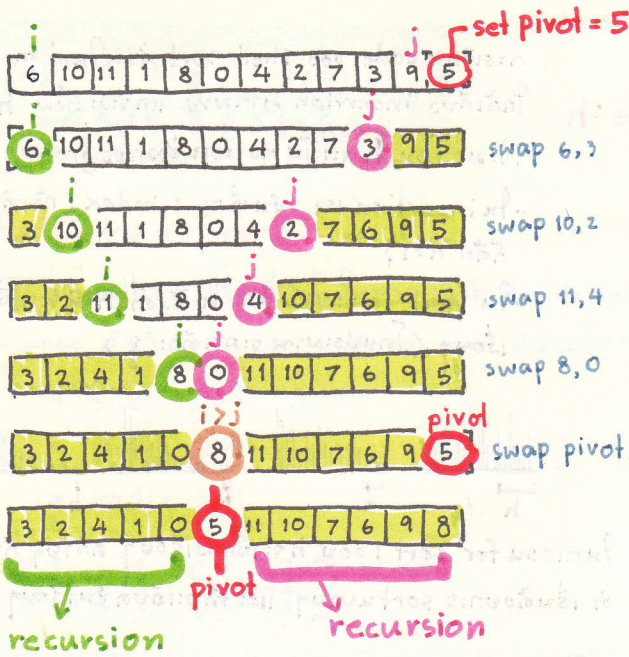 i j set pivot = 5
6 10 11 1 8 0 4 2 7 3 9 5
i j
6 10 11 1 8 0 4 2 7 3 9 5 swap 6,3
i j
3 10 11 1 8 0 4 2 7 6 9 5 swap 10,2
i j
3 2 11 1 8 0 4 10 7 6 9 5 swap 11,4
i j
3 2 4 1 8 0 11 10 7 6 9 5 swap 8,0
i>j pivot
3 2 4 1 0 8 11 10 7 6 9 5 swap pivot
3 2 4 1 0 5 11 10 7 6 9 8
pivot
recursion recursion